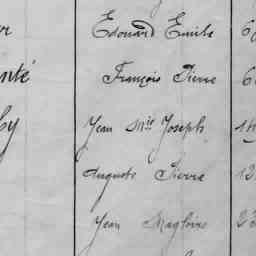 Edouard Emile
nté François Pierre
by Jean Mie Joseph
Auguste Pierre
Jean Magloire